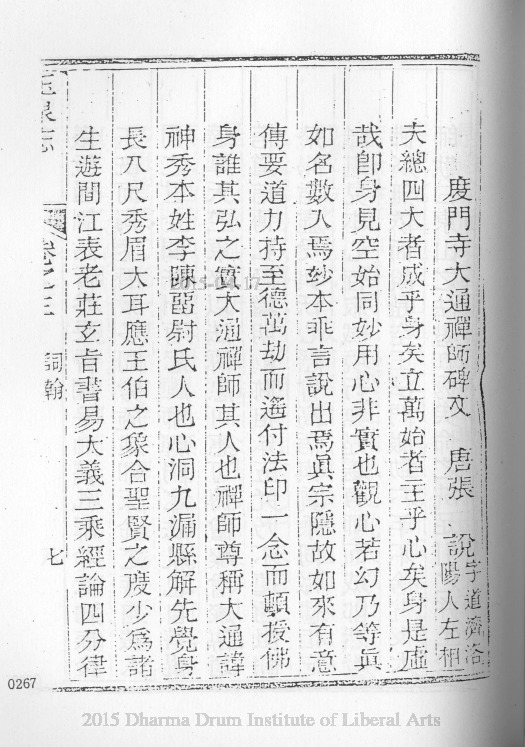 度門寺大通禪師碑文 唐張 說字道濟洛陽人左相
夫總四大者成乎身矣立萬始者主乎心矣身是虛
哉卽身見空始同妙用心非實也觀心若幻乃等眞
如名數入焉妙本乖言說出焉眞宗隱故如來有意
傳要道力持至德萬劫而遙付法印一念而頓授佛
身誰其弘之實大通禪師其人也禪師尊稱大通諱
神秀本姓李陳留尉氏人也心洞九漏懸解先覺身
長八尺秀眉大耳應王伯之象合聖賢之度少爲諸
生遊問江表老莊玄旨書易大義三乘經論四分律
玉泉志 卷之三 詞翰 七
0267
2015 Dharma Drum Institute of Liberal Arts